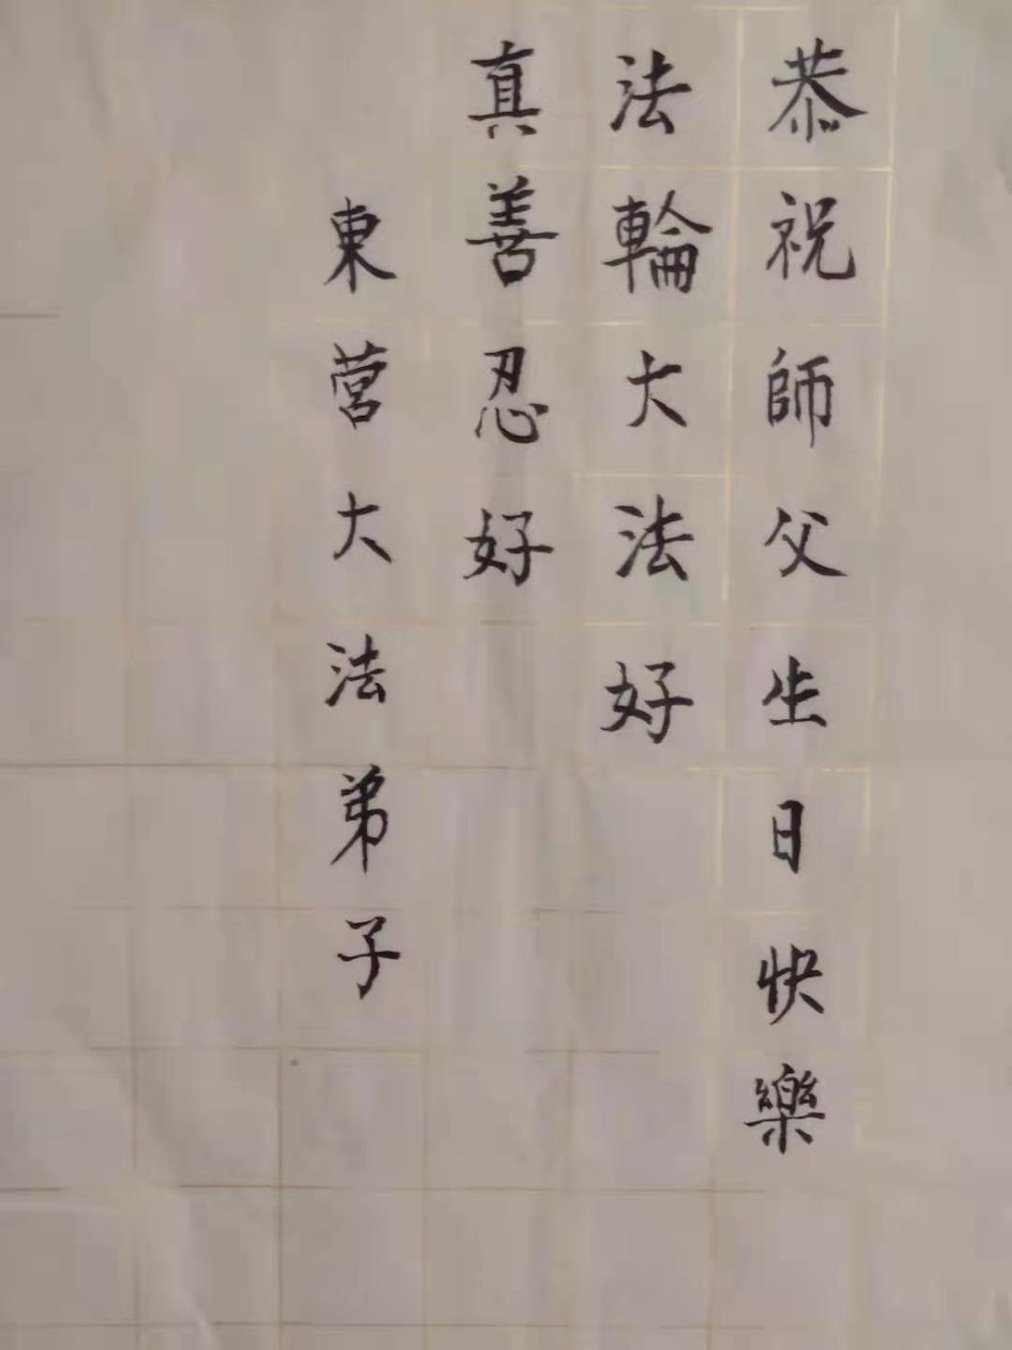 恭祝師父生日快樂
法輪大法好
真善忍好
東營大法弟子